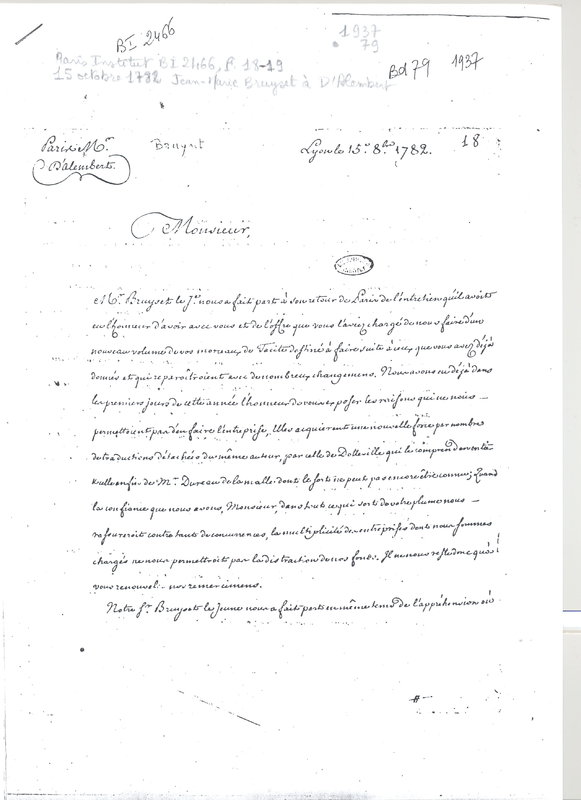 BI 2466
1937
79
Paris Institut BI 2466, f. 18-19
15 octobre 1782 Jean-Marie Bruyset à D'Alembert
Bd 79 1937
Paris Mr.
D'alembert.
Bruyset
Lyon le 15.e 8.bre 1782.
18
Monsieur,
Mr. Bruyset le Je. nous a fait part à son retour de Paris de l'entretien qu'il avoit
eu l'honneur d'avoir avec vous et de l'offre que vous l'aviez chargé de nous faire d'un
nouveau volume de vos morceaux de Tacite destiné à faire suite à ceux que vous avez déjà
donnés et qui reparoîtroient avec de nombreux changemens. Nous avons eu déjà dans
les premiers jours de cette année l'honneur de vous exposer les raisons qui ne nous
permettoient pas d'en faire l'entreprise, Elles acquierent une nouvelle force par nombre
de traductions détachées du même auteur, par celle de Dotteville qui le comprend en entier
& celle enfin de Mr. Dureau de la malle dont le sort ne peut pas encore être connu; Quand
la confiance que nous avons, Monsieur, dans tout ce qui sort de votre plume nous
rassureroit contre toutes concurrences, la multiplicité des entreprises dont nous sommes
chargés ne nous permettroit pas la distraction de nos fonds. Il ne nous reste donc qu'à
vous renouvel nos remercimens.
Notre Sr. Bruyset le Jeune nous a fait part en même tems de l'appréhension où
#